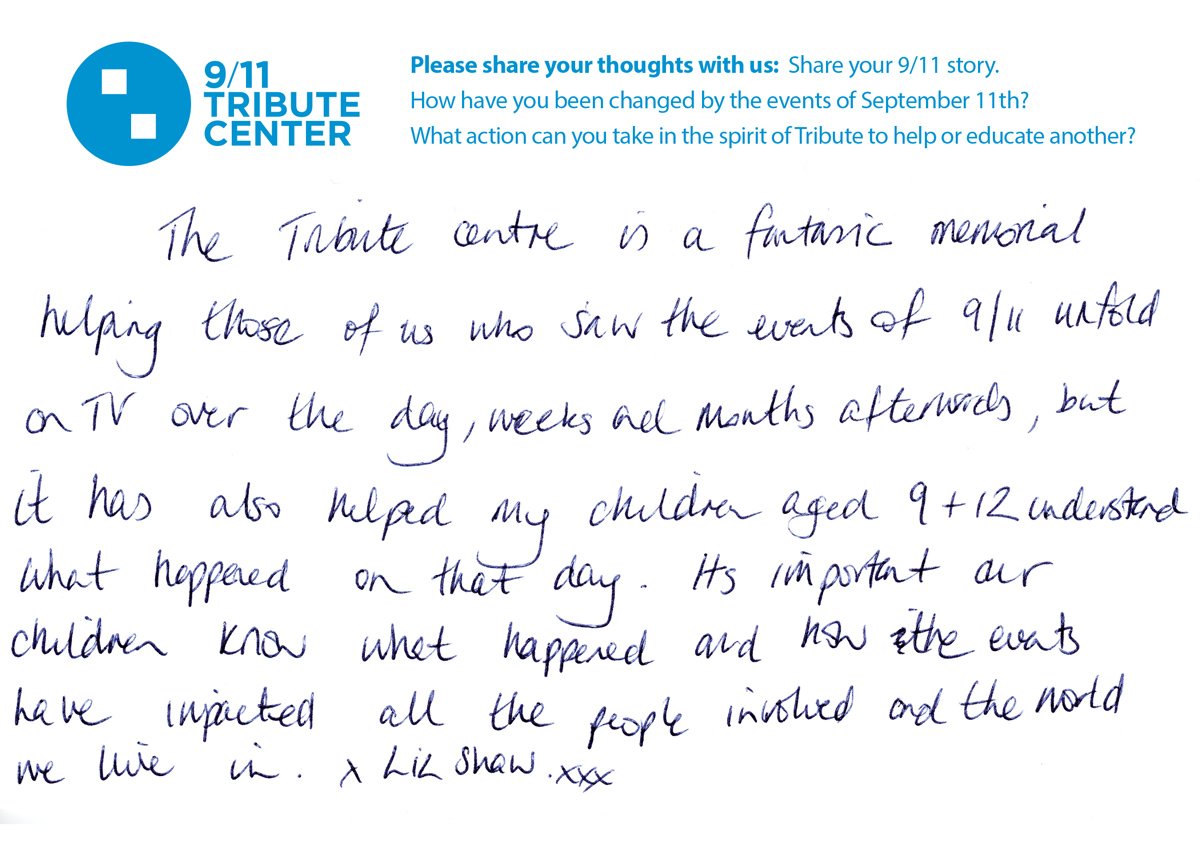 9/11
TRIBUTE
CENTER
Please share your thoughts with us: Share your 9/11 story.
How have you been changed by the events of September 11th?
What action can you take in the spirit of Tribute to help or educate another?
The Tribute centre is a fantasic memorial
helping those of us who saw the events of 9/11 unfold
on TV over the day, weeks and months afterwards, but
it has also helped my children aged 9 + 12 understand
what happened on that day. Its important our
children know what happened and how the events
have impacted all the people involved and the world
we live in. x Liz Shaw. xxx